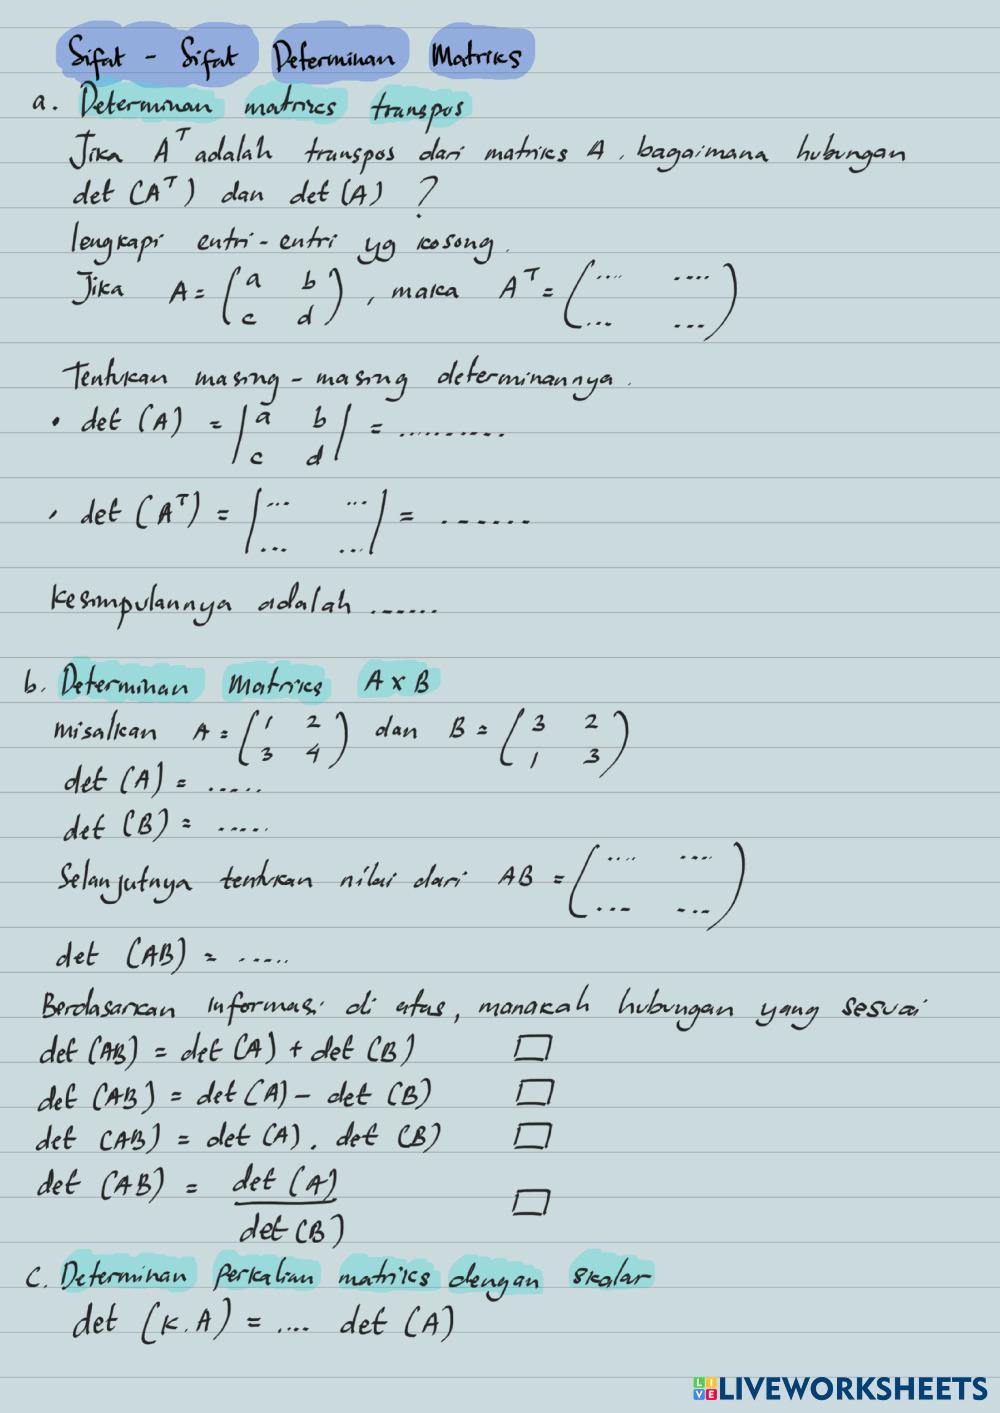 Sifat - Sifat Determinan Matriks
a. Determinan matriks transpos
Jika Aᵀ adalah transpos dari matriks A, bagaimana hubungan
det (Aᵀ) dan det (A) ?
lengkapi entri-entri yg kosong.
Jika A = (a b), maka Aᵀ = (.... ....)
(c d) (... ...)
Tentukan masing-masing determinannya.
• det (A) = |a b| = ..........
|c d|
• det (Aᵀ) = |... ...| = .......
|... ...|
Kesimpulannya adalah ......
b. Determinan Matriks A x B
misalkan A = (1 2) dan B = (3 2)
(3 4) (1 3)
det (A) = .....
det (B) = .....
Selanjutnya tentukan nilai dari AB = (.... ....)
(... ...)
det (AB) = .....
Berdasarkan informasi di atas, manakah hubungan yang sesuai
det (AB) = det (A) + det (B)
det (AB) = det (A) - det (B)
det (AB) = det (A) . det (B)
det (AB) = det (A)
det (B)
C. Determinan perkalian matriks dengan skalar
det (K.A) = .... det (A)
LIVEWORKSHEETS